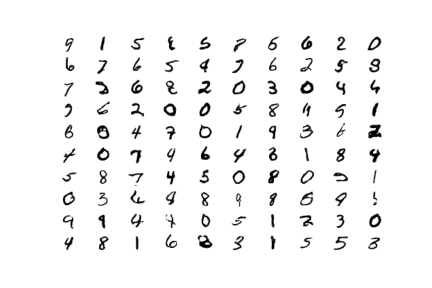 9 1 5 8 5 7 6 6 2 0
6 7 6 5 9 7 6 2 5 3
7 2 6 8 2 0 3 0 4 4
7 6 2 0 0 5 8 4 5 1
8 0 4 7 0 1 9 3 6 2
4 0 7 9 6 4 3 1 8 9
5 8 7 4 5 0 8 0 1
0 3 6 8 8 9 8 8 9 1
9 9 4 4 0 5 1 2 3 0
4 8 1 6 8 3 1 5 5 3